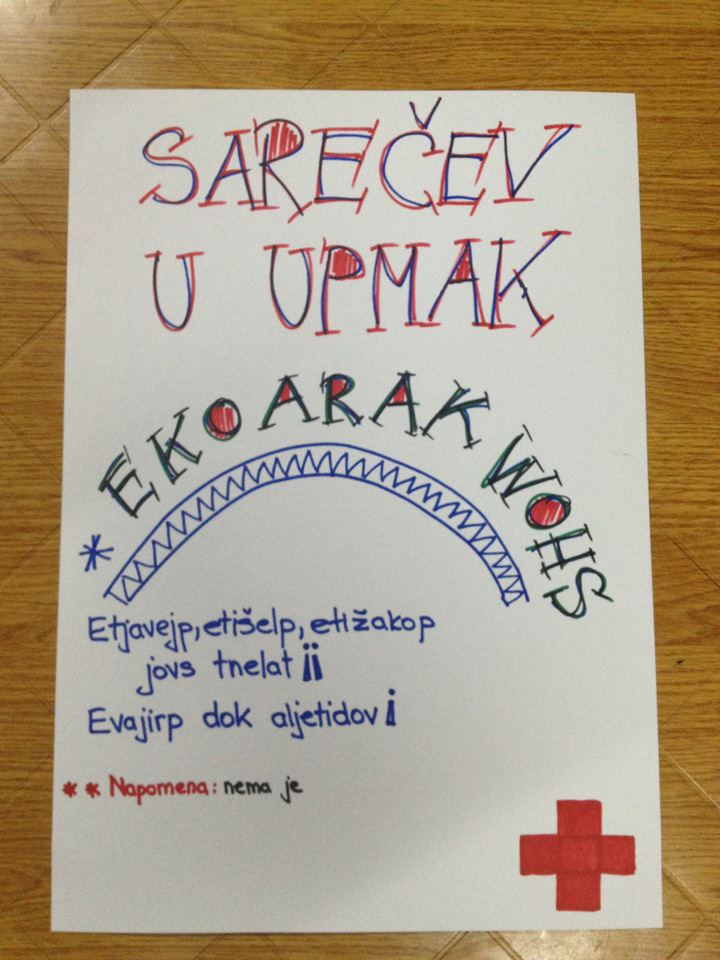 SAREČEV
U UPMAK
* EKOARAK WOHS
Etjavejp, etišelp, etižakop
jovs tnelat ¡¡
Evajirp dok aljetidov ¡
** Napomena: nema je